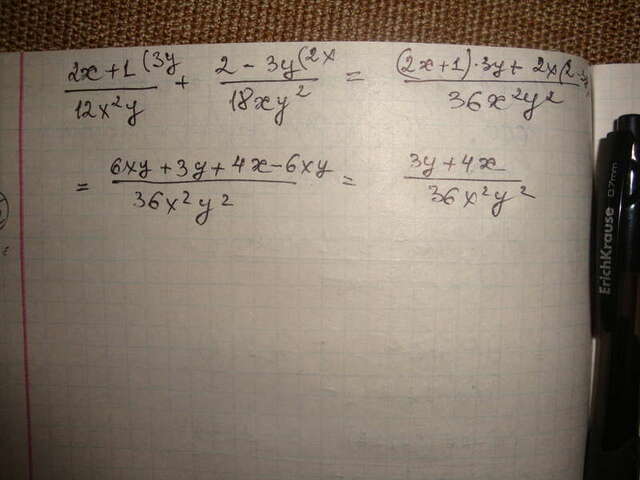 (2x+1)/(12x²y) (3y + (2-3y)/(18xy²) (2x = ((2x+1)·3y+2x(2-3y))/(36x²y²)
= (6xy+3y+4x-6xy)/(36x²y²) = (3y+4x)/(36x²y²)
ErichKrause 0.7mm